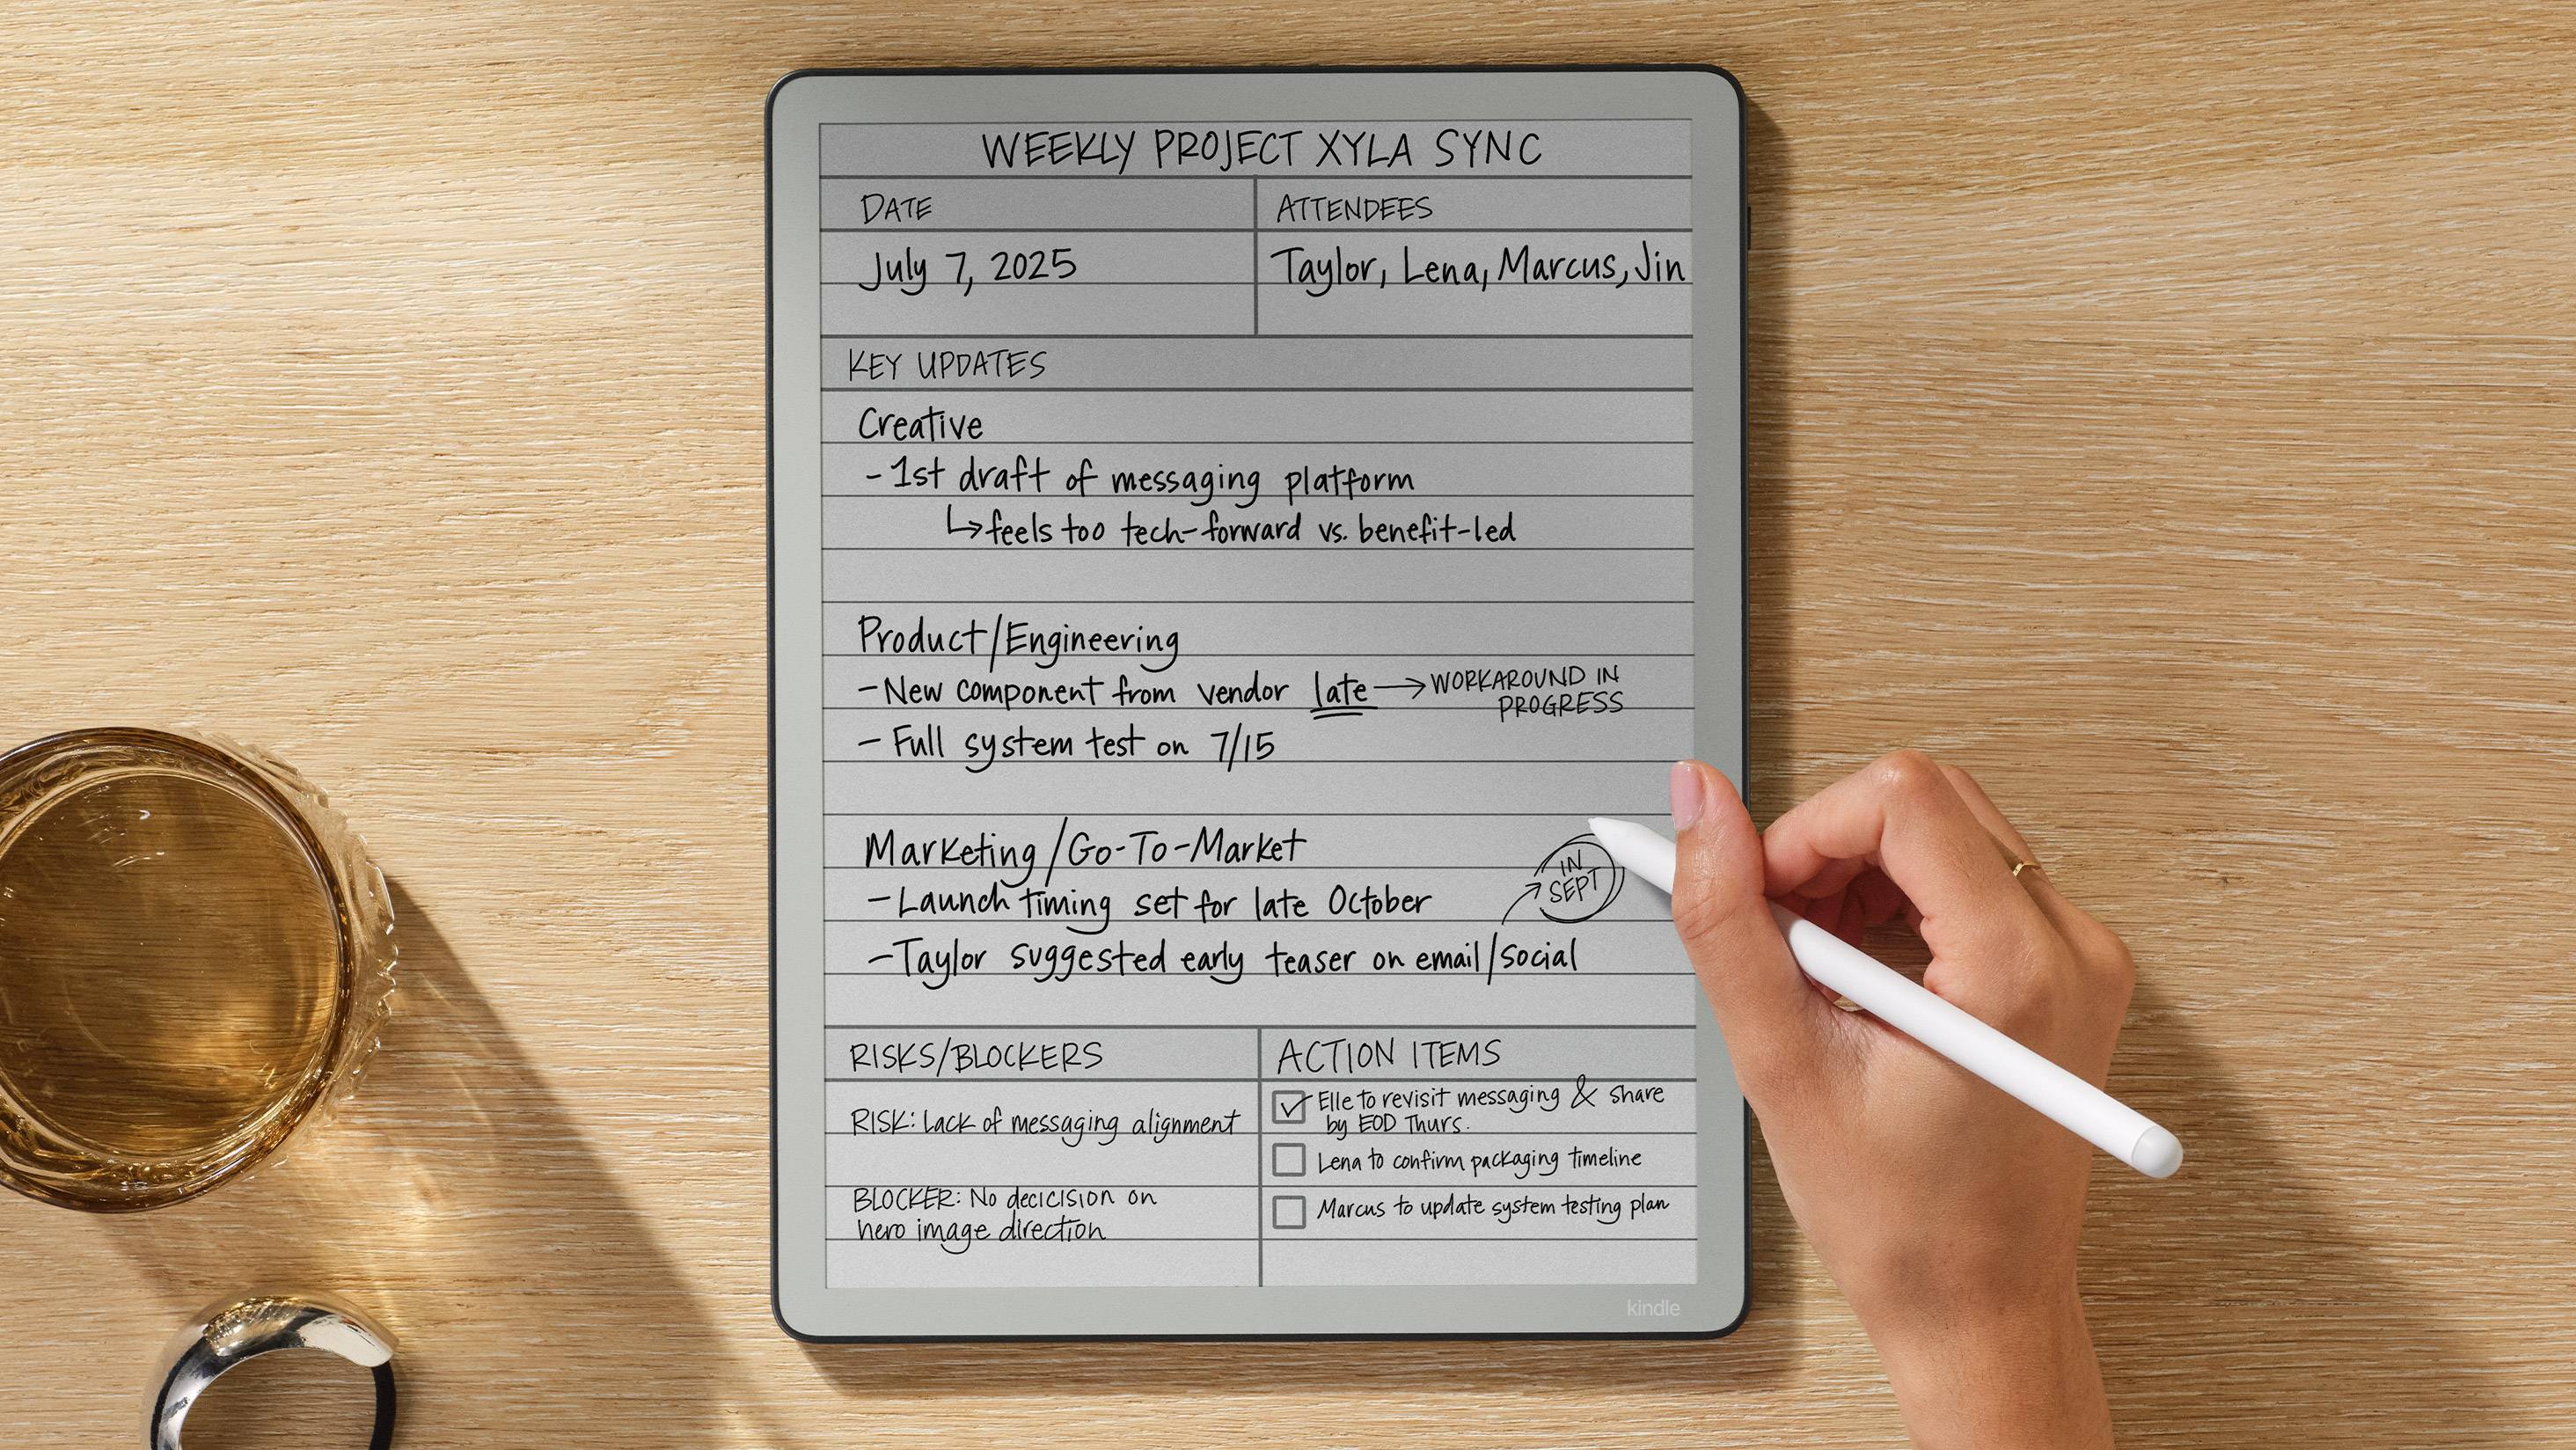 WEEKLY PROJECT XYLA SYNC
DATE
ATTENDEES
July 7, 2025
Taylor, Lena, Marcus, Jin
KEY UPDATES
Creative
- 1st draft of messaging platform
↳ feels too tech-forward vs. benefit-led
Product/Engineering
- New component from vendor late → WORKAROUND IN
PROGRESS
- Full system test on 7/15
Marketing/Go-To-Market
- Launch timing set for late October
IN
SEPT
- Taylor suggested early teaser on email/social
RISKS/BLOCKERS
RISK: Lack of messaging alignment
BLOCKER: No decicision on
hero image direction
ACTION ITEMS
Elle to revisit messaging & share
by EOD Thurs.
Lena to confirm packaging timeline
Marcus to update system testing plan
kindle